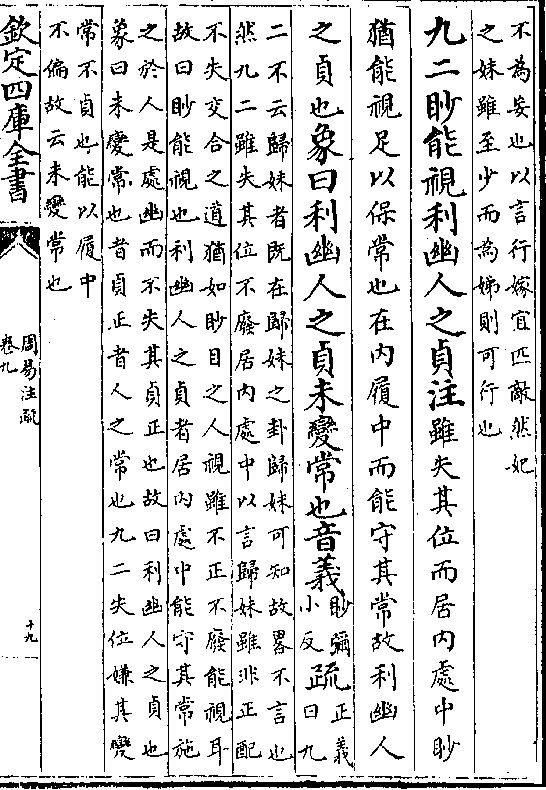 不為妄也以言行嫁宜匹敵然妃
之妹雖至少而為娣則可行也
九二眇能視利幽人之貞注雖失其位而居內處中眇
猶能視足以保常也在內履中而能守其常故利幽人
之貞也象曰利幽人之貞未變常也音義眇彌小反疏正義曰九
二不云歸妹者既在歸妹之卦歸妹可知故畧不言也
然九二雖失其位不廢居內處中以言歸妹雖非正配
不失交合之道猶如眇目之人視雖不正不廢能視耳
故曰眇能視也利幽人之貞者居內處中能守其常施
之於人是處幽而不失其貞正也故曰利幽人之貞也
象曰未變常也者貞正者人之常也九二失位嫌其變
常不貞也能以履中
不偏故云未變常也
欽定四庫全書
周易注疏
卷九
十九